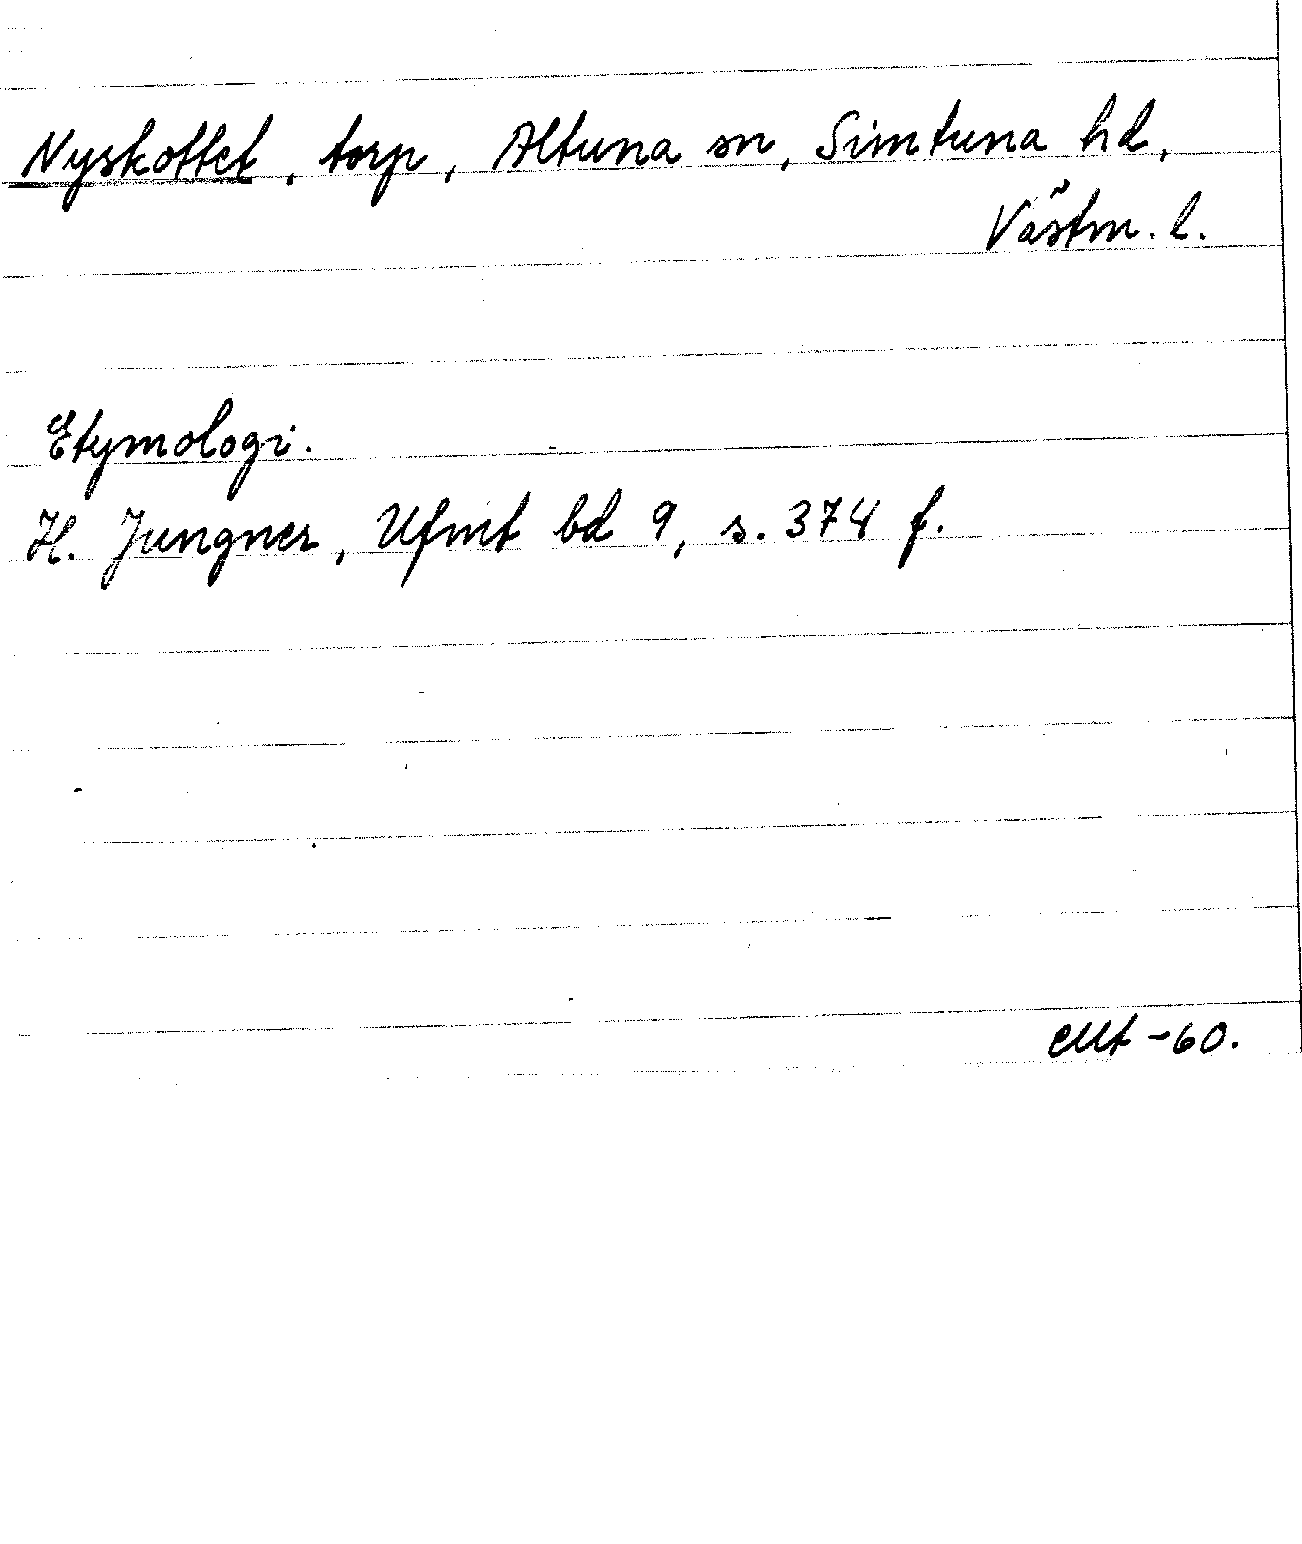 Nyskottet, torp, Altuna sn, Simtuna hd,
Västm. l.
Etymologi.
H. Jungner, Ufmt bd 9, s. 374 f.
-60.